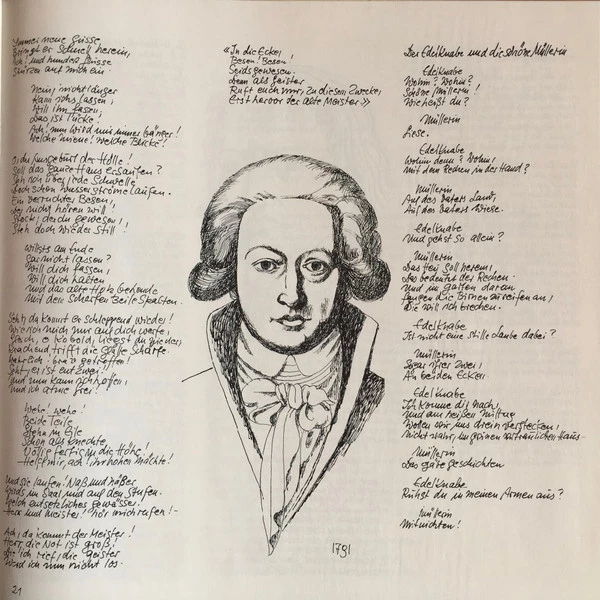 Immer neue Güsse
Bringt er schnell herein,
Ach! und hundert Flüsse
Stürzen auf mich ein.
Nein, nicht länger
Kann ichs lassen;
Will ihn fassen,
Das ist Tücke!
Ach, nun wird mir immer bänger!
Welche Miene! Welche Blicke!
O du Ausgeburt der Hölle!
Soll das ganze Haus ersaufen?
Seh ich über jede Schwelle
Doch schon Wasserströme laufen.
Ein verruchter Besen,
Der nicht hören will
Stock, der du gewesen,
Steh doch wieder still!
Willsts am Ende
Gar nicht lassen?
Will dich fassen,
Will dich halten
Und das alte Holz behende
Mit dem scharfen Beile spalten.
Seht, da kommt er schleppend wieder!
Wie ich mich nur auf dich werfe,
Gleich, o Kobold, liegst du nieder;
Krachend trifft die glatte Schärfe.
Wahrlich! brav getroffen!
Seht, er ist entzwei!
Und nun kann ich hoffen,
Und ich atme frei!
Wehe! wehe!
Beide Teile
Stehn in Eile
Schon als Knechte
Völlig fertig in die Höhe!
Helft mir, ach! ihr hohen Mächte!
Und sie laufen! Naß und nässer
Wirds im Saal und auf den Stufen.
Welch entsetzliches Gewässer!
Herr und Meister! hör mich rufen! -
Ach, da kommt der Meister!
Herr, die Not ist groß!
Die ich rief, die Geister
Werd ich nun nicht los.
21
«In die Ecke,
Besen! Besen!
Seids gewesen.
Denn als Geister
Ruft euch nur, zu diesem Zwecke,
Erst hervor der alte Meister.»
1791
Der Edelknabe und die schöne Müllerin
Edelknabe
Wohin? Wohin?
Schöne Müllerin!
Wie heißt du?
Müllerin
Liese.
Edelknabe
Wohin denn? Wohin,
Mit dem Rechen in der Hand?
Müllerin
Auf des Vaters Land,
Auf des Vaters Wiese.
Edelknabe
Und gehst so allein?
Müllerin
Das Heu soll herein,
Das bedeutet der Rechen.
Und im Garten daran
Fangen die Birnen zu reifen an,
Die will ich brechen.
Edelknabe
Ist nicht eine stille Laube dabei?
Müllerin
Sogar ihrer zwei,
An beiden Ecken.
Edelknabe
Ich komme dir nach,
Und am heißen Mittag
Wollen wir uns drein verstecken,
Nicht wahr, im grünen vertraulichen Haus -
Müllerin
Das gäbe Geschichten
Edelknabe
Ruhst du in meinen Armen aus?
Müllerin
Mitnichten!